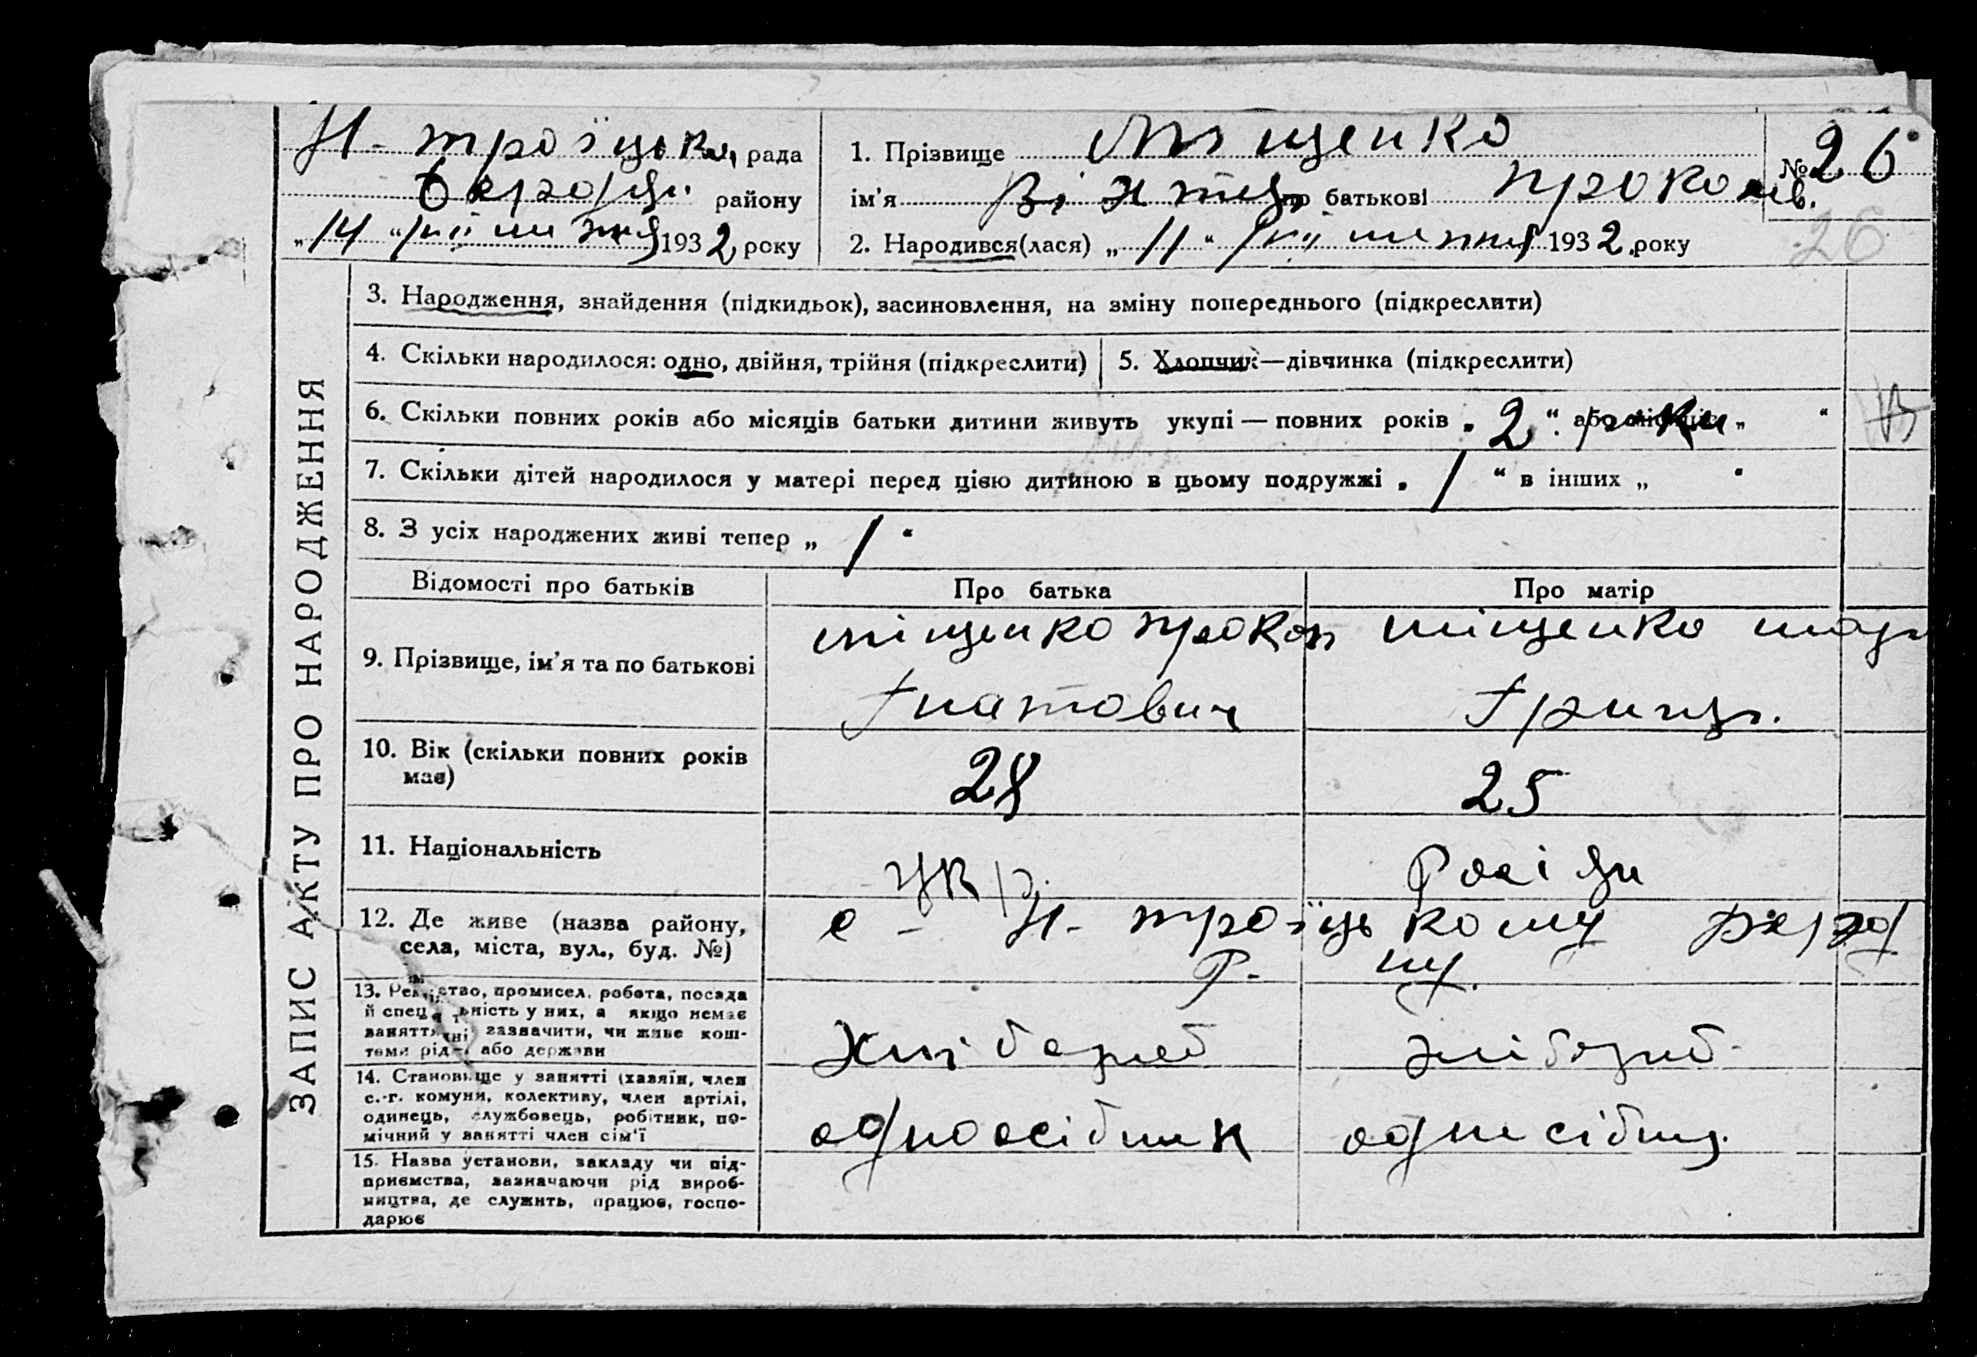 Н- троїцька, рада
району
„14“ 1932 року
1. Прізвище Міщенко
ім’я Віктор по батькові Проков.
№ 26
26
2. Народився(лася) „11“ 1932 року
ЗАПИС АКТУ ПРО НАРОДЖЕННЯ
3. Народження, знайдення (підкидьок), засиновлення, на зміну попереднього (підкреслити)
4. Скільки народилося: одно, двійня, трійня (підкреслити)
5. Хлопчик—дівчинка (підкреслити)
6. Скільки повних років або місяців батьки дитини живуть укупі — повних років „2“ або місяців роки „ “
7. Скільки дітей народилося у матері перед цією дитиною в цьому подружжі „1“ в інших „ “
8. З усіх народжених живі тепер „1“
Відомості про батьків
Про батька
Про матір
9. Прізвище, ім’я та по батькові
міщенко прокоп
Гнатович
міщенко
Григор.
10. Вік (скільки повних років
має)
28
25
11. Національність
Укр.
12. Де живе (назва району,
села, міста, вул., буд. №)
с - Н- троїцькому
Р.
13. Ремество, промисел, робота, посада
й спеціяльність у них, а якщо немає
заняття зазначити, чи живе кош-
тами рідні або держави
хлібороб
хлібороб
14. Становище у занятті (хазяїн, член
с.-г. комуни, колективу, член артілі,
одинець, службовець, робітник, по-
мічний у занятті член сім’ї
одноосібник
15. Назва установи, закладу чи під-
приємства, зазначаючи рід вироб-
ництва, де служить, працює, госпо-
дарює